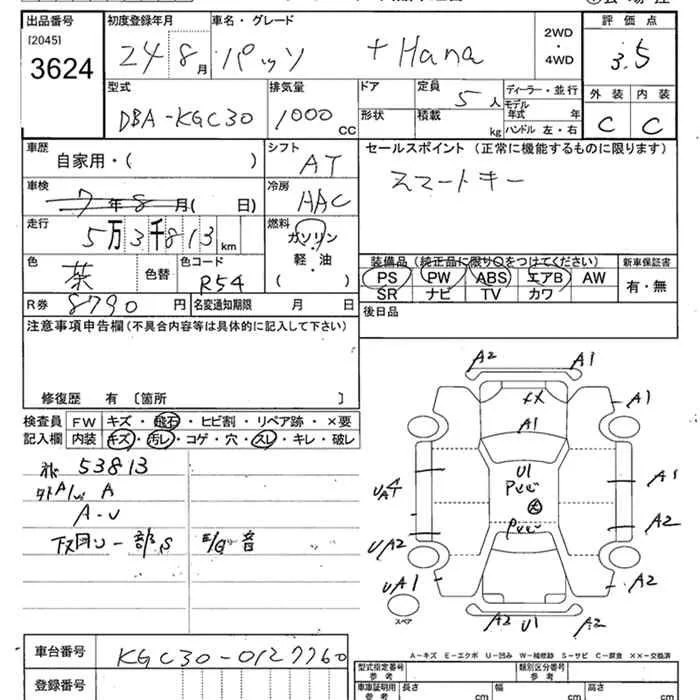 出品番号 初度登録年月 車名・グレード 2WD・4WD 評価点
[2045]
3624 24 8月 パッソ +Hana 3.5
型式 排気量 ドア 定員 5人 ディーラー・並行 外装 内装
DBA-KGC30 1000cc 形状 積載 kg モデル年式 年 C C
ハンドル 左・右
車歴 自家用・( ) シフト AT セールスポイント(正常に機能するものに限ります)
車検 7年8月( 日) 冷房 AAC スマートキー
走行 5万3千813km 燃料 ガソリン・軽油( )
色 茶 色替 色コード R54
装備品(純正品に限りOをつけてください) 新車保証書
PS PW ABS エアB AW 有・無
SR ナビ TV カワ
R券 8790円 名変通知期限 月 日 後日品
注意事項申告欄(不具合内容等は具体的に記入して下さい)
修復歴 有〔箇所 〕
検査員 FW キズ・飛石・ヒビ割・リペア跡・×要
記入欄 内装 キズ・汚レ・コゲ・穴・スレ・キレ・破レ
53813
A
A-U
A2 A1
A1
A1
U1
A1
A2
UA2
UA1 A2
A2 U1 A2
スペア
A-キズ E-エクボ U-凹み W-補修跡 S-サビ C-腐食 ××-交換済
車台番号 KGC30-0127760
登録番号
型式指定番号 参考 類別区分番号 参考
車庫証明用 参考 長さ cm 幅 cm 高さ cm